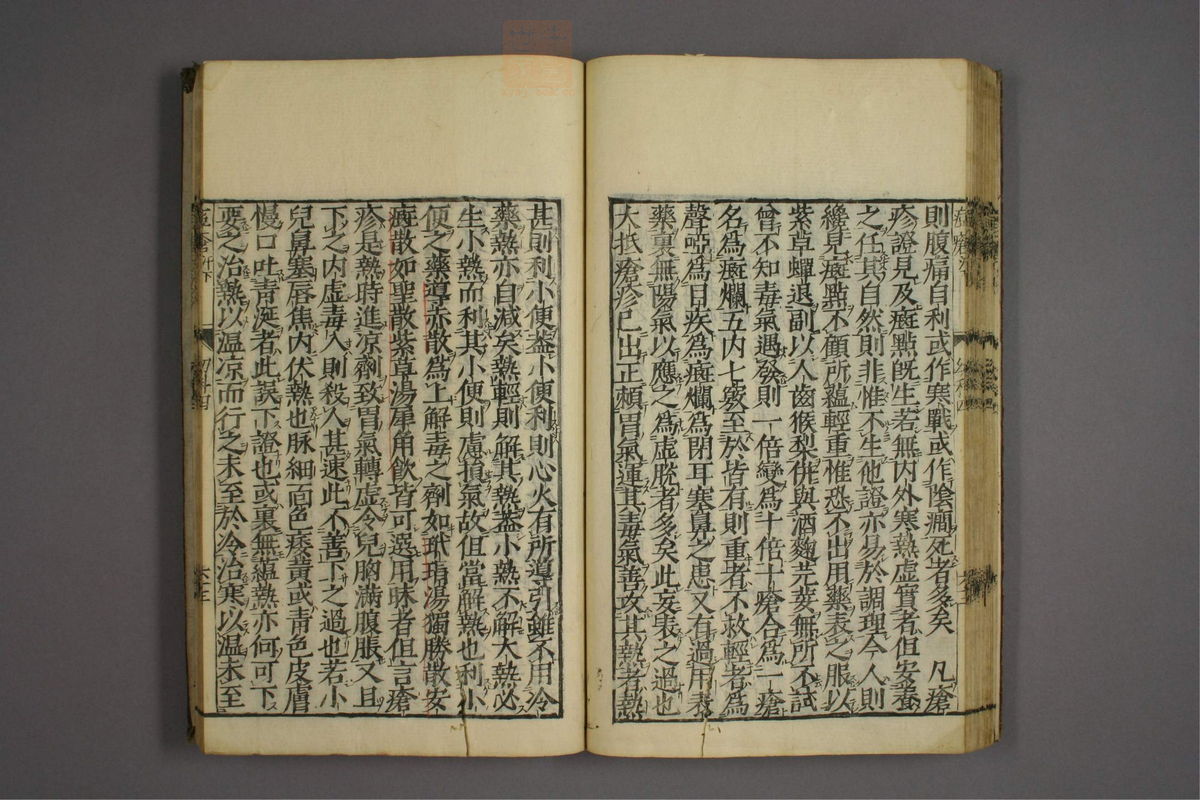 則腹痛自利或作寒戰或作陰癇死者多矣　凡瘡
疹證見及癍點旣生若無内外寒熱虚實者但安養
之任其自然則非惟不生他證亦易於調理今人則
纔見癍點不顧所蘊輕重惟恐不出用藥表之服以
紫草蟬退副以人齒猴梨併與酒麴芫荽無所不試
曾不知毒氣遇發則一倍變爲十倍十瘡合爲一瘡
名爲癍爛五内七竅至於皆有則重者不救輕者爲
聲啞爲目疾爲癍爛爲閉耳塞鼻之患又有過用表
藥裏無陽氣以應之爲虚脱者多矣此妄表之過也
大抵瘡疹已出正頼胃氣運其毒氣善攻其熱者熱
甚則利小便盖小便利則心火有所導引雖不用冷
藥熱亦自減矣熱輕則解其熱盖小熱不解大熱必
生小熱而利其小便則慮損氣故但當解熱也利小
便之藥導赤散爲上解毒之劑如玳瑁湯獨勝散安
癍散如聖散紫草湯犀角飲皆可選用昧者但言瘡
疹是熱時進凉劑致胃氣轉虚令兒胸滿腹脹又且
下之内虚毒入則殺人甚速此不善下之過也若小
兒鼻塞唇焦内伏熱也脉細面色痿黄或青色皮膚
慢口吐青涎者此誤下證也或裏無蘊熱亦何可下
要之治熱以温凉而行之未至於冷治寒以温未至